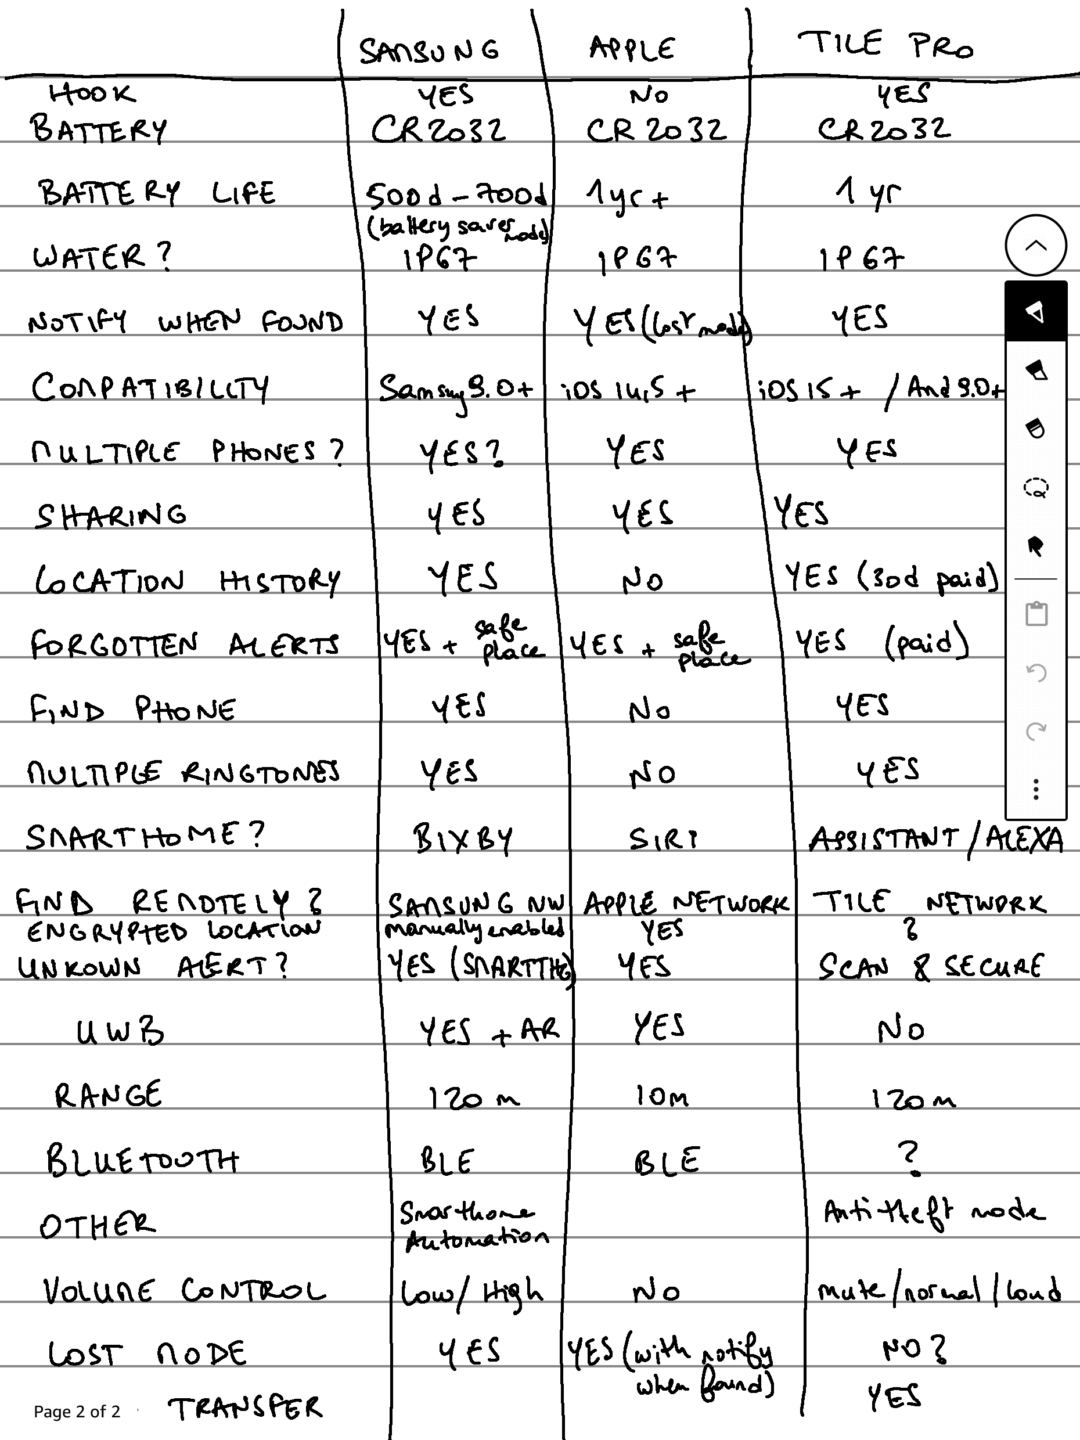 SAMSUNG APPLE TILE PRO
HOOK YES NO YES
BATTERY CR2032 CR2032 CR2032
BATTERY LIFE 500d - 700d 1yr + 1 yr
(battery saver mode)
WATER? IP67 IP67 IP67
NOTIFY WHEN FOUND YES YES (lost mode) YES
COMPATIBILITY Samsung 9.0+ iOS 14,5 + iOS 15 + / And 9.0+
MULTIPLE PHONES? YES? YES YES
SHARING YES YES YES
LOCATION HISTORY YES NO YES (30d paid)
FORGOTTEN ALERTS YES + safe place YES + safe place YES (paid)
FIND PHONE YES NO YES
MULTIPLE RINGTONES YES NO YES
SMARTHOME? BIXBY SIRI ASSISTANT / ALEXA
FIND REMOTELY? SAMSUNG NW APPLE NETWORK TILE NETWORK
ENCRYPTED LOCATION manually enabled YES ?
UNKOWN ALERT? YES (SMARTTHG) YES SCAN & SECURE
UWB YES + AR YES NO
RANGE 120 m 10m 120m
BLUETOOTH BLE BLE ?
OTHER Smarthome Automation Anti theft mode
VOLUME CONTROL Low/High NO mute/normal/loud
LOST MODE YES YES (with notify when found) NO?
Page 2 of 2 TRANSFER YES